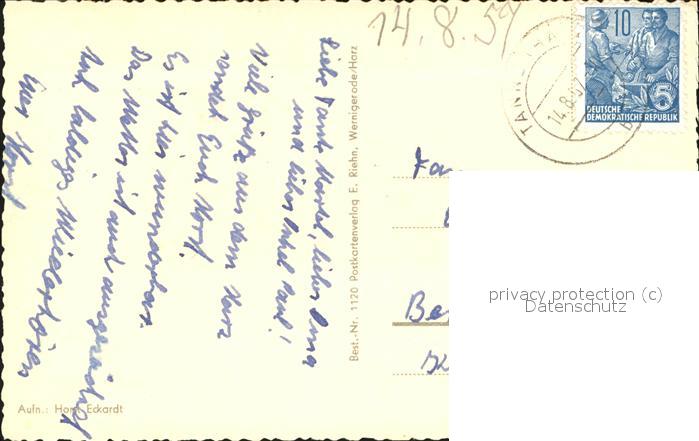 14.8.57
10
DEUTSCHE
DEMOKRATISCHE REPUBLIK
5
TANNE
14.8.57
Liebe Tante Martel, liebe Oma
und lieber Onkel Paul!
Viele Grüße aus dem Harz
sendet Euch Horst.
Es ist hier wunderbar.
Das Wetter ist auch ausgezeichnet
Auf baldiges Wiederhören
Euer Horst
Best.-Nr. 1120 Postkartenverlag E. Riehn, Wernigerode/Harz
Aufn.: Horst Eckardt
Be
privacy protection (c)
Datenschutz